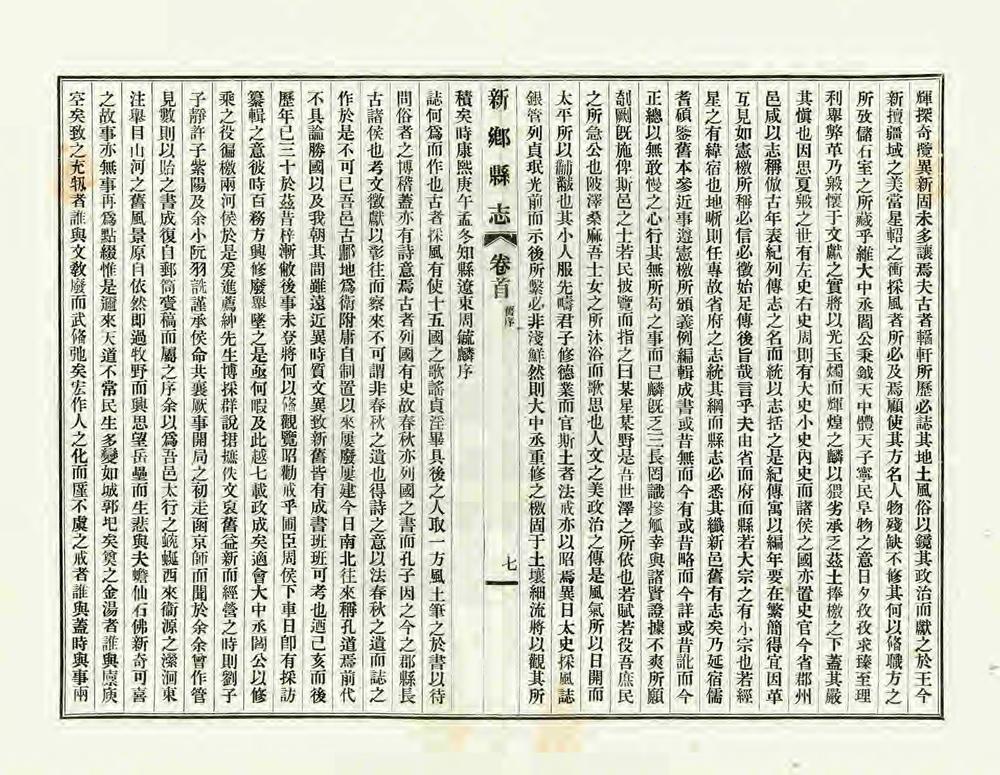 輝探奇攬異新固未多讓焉夫古者輶軒所歷必誌其地土風俗以鏡其政治而獻之於王今
新擅疆域之美當星軺之衝採風者所必及焉顧使其方名人物殘缺不修其何以俻職方之
所攷儲石室之所藏乎維大中丞閻公秉鉞天中體天子寧民阜物之意日夕孜孜求臻至理
利舉弊革乃毅懷于文獻之實將以光玉燭而輝煌之麟以猥劣承乏茲土捧檄之下蓋其嚴
其愼也因思夏殷之世有左史右史周則有大史小史內史而諸侯之國亦置史官今省郡州
邑咸以志稱倣古年表紀列傳志之名而統以志括之是紀傳寓以編年要在繁簡得宜因革
互見如憲檄所稱必信必徵始足傳後旨哉言乎夫由省而府而縣若大宗之有小宗也若經
星之有緯宿也地晰則任專故省府之志統其綱而縣志必悉其纖新邑舊有志矣乃延宿儒
耆碩鑒舊本參近事遵憲檄所頒義例編輯成書或昔無而今有或昔略而今詳或昔訛而今
正總以無敢慢之心行其無所苟之事而已麟旣乏三長罔識慘觚幸與諸賢證據不爽所願
剞劂旣施俾斯邑之士若民披覽而指之曰某星某野是吾世澤之所依也若賦若役吾庶民
之所急公也陂澤桑麻吾士女之所沐浴而歌思也人文之美政治之傳是風氣所以日開而
太平所以黼黻也其小人服先疇君子修德業而官斯土者法戒亦以昭焉異日太史採風誌
銀管列貞珉光前而示後所繫必非淺鮮然則大中丞重修之檄固于土壤細流將以觀其所
新鄉縣志 卷首 舊序 七
積矣時康熙庚午孟冬知縣遼東周毓麟序
誌何爲而作也古者採風有使十五國之歌謠貞淫畢具後之人取一方風土筆之於書以待
問俗者之博稽蓋亦有詩意焉古者列國有史故春秋亦列國之書而孔子因之今之郡縣長
古諸侯也考文徵獻以彰往而察來不可謂非春秋之遺也得詩之意以法春秋之遺而誌之
作於是不可已吾邑古鄘地爲衛附庸自制置以來屢廢屢建今日南北往來稱孔道焉前代
不具論勝國以及我朝其間雖遠近異時質文異致新舊皆有成書班班可考也迺己亥而後
歷年已三十於茲昔梓漸敝後事未登將何以俻觀覽昭勸戒乎圃臣周侯下車日卽有採訪
纂輯之意彼時百務方興修廢舉墜之是亟何暇及此越七載政成矣適會大中丞閻公以修
乘之役徧檄兩河侯於是爰進薦紳先生博採群說捃摭佚文裒舊益新而經營之時則劉子
子靜許子紫陽及余小阮羽詵謹承侯命共襄厥事開局之初走函京師而聞於余余曾作管
見數則以貽之書成復自郵筒賫稿而屬之序余以爲吾邑太行之蜿蜒西來衛源之瀠洄東
注舉目山河之舊風景原自依然卽過牧野而興思望岳壘而生悲與夫嬗仙石佛新奇可喜
之故事亦無事再爲點綴惟是邇來天道不常民生多變如城郭圮矣奠之金湯者誰與廪庾
空矣致之充牣者誰與文敎廢而武俻弛矣宏作人之化而厪不虞之戒者誰與蓋時與事兩